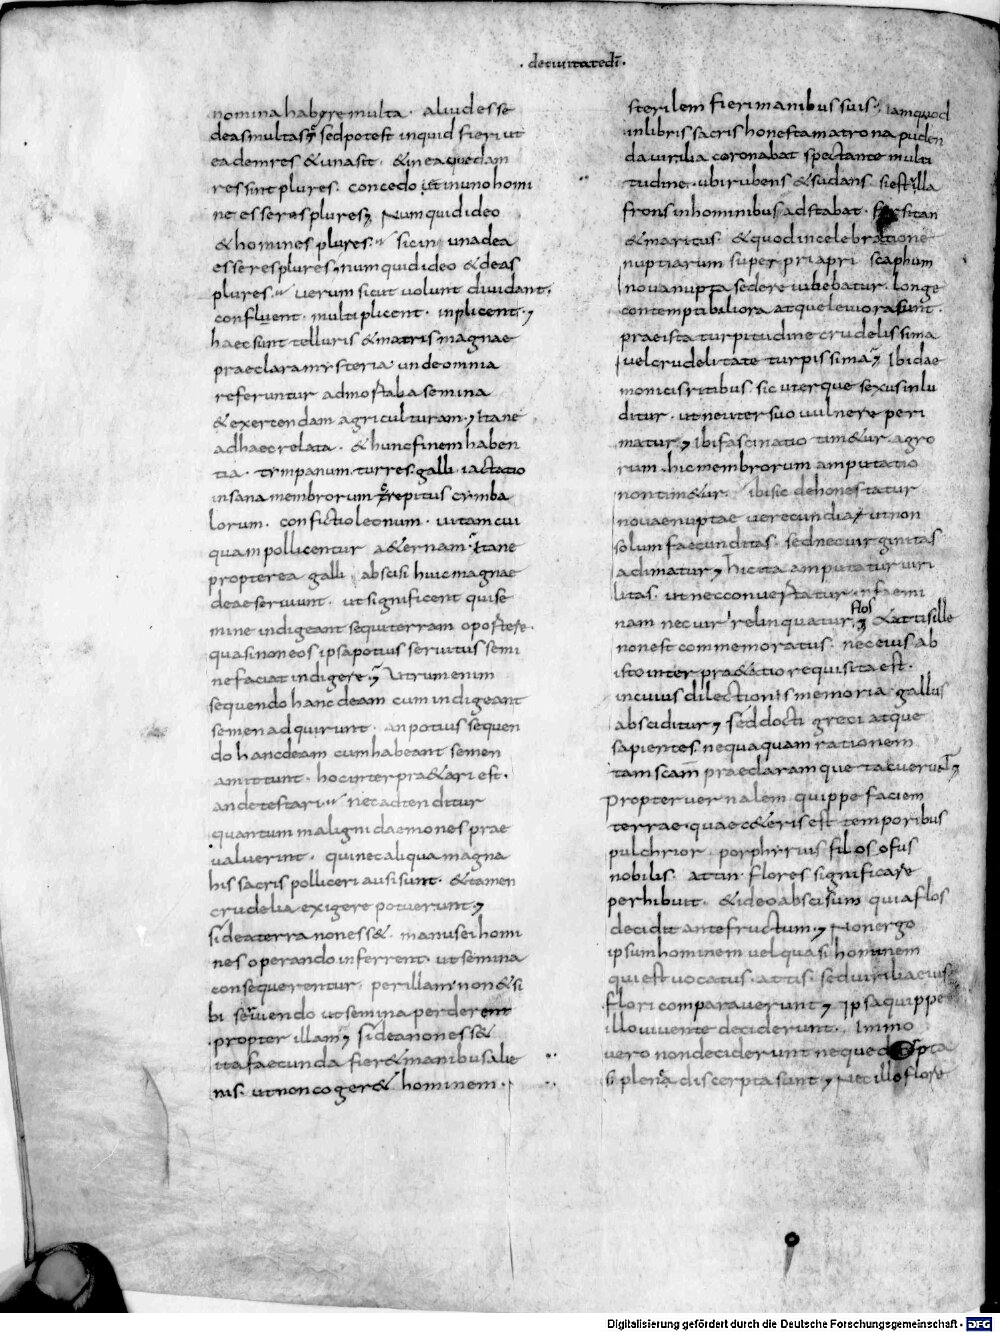 · deciuitatedī ·
nominahabere multa · aliudesse
deasmultas; sedpotest inquid fieri ut
eademres &unasit · &inea quedam
res sint plures · concedo ut inunohomi
ne esseresplures; Numquidideo
&homines plures · sicin unadea
esseresplures; numquidideo &deas
plures · uerum sicut uolunt diuidant ·
confluent · multiplicent · inplicent ·;
haecsunt telluris &matris magnae
praeclara mysteria undeomnia
referuntur admostaba semina
&exertendam agriculturam; Itane
adhaec relata · &huncfinem haben
tia · tympanum turres galli iactatio
insana membrorum crepitus cymba
lorum · confictioleonum · uitamcui
quam pollicentur a&ernam · Itane
propterea galli abscisi huicmagnae
deaeseruiunt · utsignificent quise
mine indigeant sequiterram oportere ·
quasinoneos ipsapotius seruitus semi
nefaciatindigere; Utrumenim
sequendo hancdeam cumindigeant
semen adquirunt · anpotius sequen
do hancdeam cumhabeant semen
amittunt · hocinterpra&ari est ·
andetestari · necadtenditur
quantum maligni daemones prae
ualuerint · quinecaliquamagna
his sacris polliceri ausisunt · &tamen
crudelia exigere potuerunt;
Sideaterra noness& · manuseihomi
nes operando inferrent · utsemina
consequerentur · perillam non&si
bi seuiendo utsemina perderent
propter illam; sideanoness&
itafaecunda fier& manibusalie
nis · utnoncoger& hominem ·
sterilem fierimanibus suis; iamquod
inlibris sacris honestamatrona puden
dauirilia coronabat spectante multi
tudine · ubirubens &sudans siestilla
frons inhominibus adstabat · forsitan
&maritus · &quodincelebratione
nuptiarum super priapri scaphum
nouanupta sedere iubebatur · longe
contemptibiliora atqueleuiorasunt ·
praeista turpitudine crudelissima
uelcrudelitate turpissima; Ibidae
monicisritibus · sic uterque sexusinlu
ditur · utneutersuo uulnere peri
matur; Ibifascinatio tim&ur · agro
rum · hicmembrorum amputatio
nontim&ur · ibisic dehonestatur
nouaenuptae uerecundia · utnon
solum faecunditas · sednecuirginitas
adimatur; hicita amputatur uiri
litas · utnecconuertatur infaemi
nam necuir relinquatur; &attisille
flos
nonest commemoratus · neceius ab
istointerpra&atio requisita est ·
incuius dilectionis memoria gallus
absciditur; Seddocti greci atque
sapientes nequaquam rationem
tamscam praeclaramque tacuerunt;
Propteruernalem quippe faciem
terrae · quaec&eris est temporibus
pulchrior · porphyrius filosofus
nobilis · attin flores significare
perhibuit · &ideoabscisum quiaflos
decidit antefructum; Nonergo
ipsumhominem uelquasi hominem
quiestuocatus attis · seduiriliaeius
flori comparauerunt; Ipsaquippe
illouiuente deciderunt · Immo
uero nondeciderunt neque
plena discerptasunt; Necilloflore
Digitalisierung gefördert durch die Deutsche Forschungsgemeinschaft - DFG